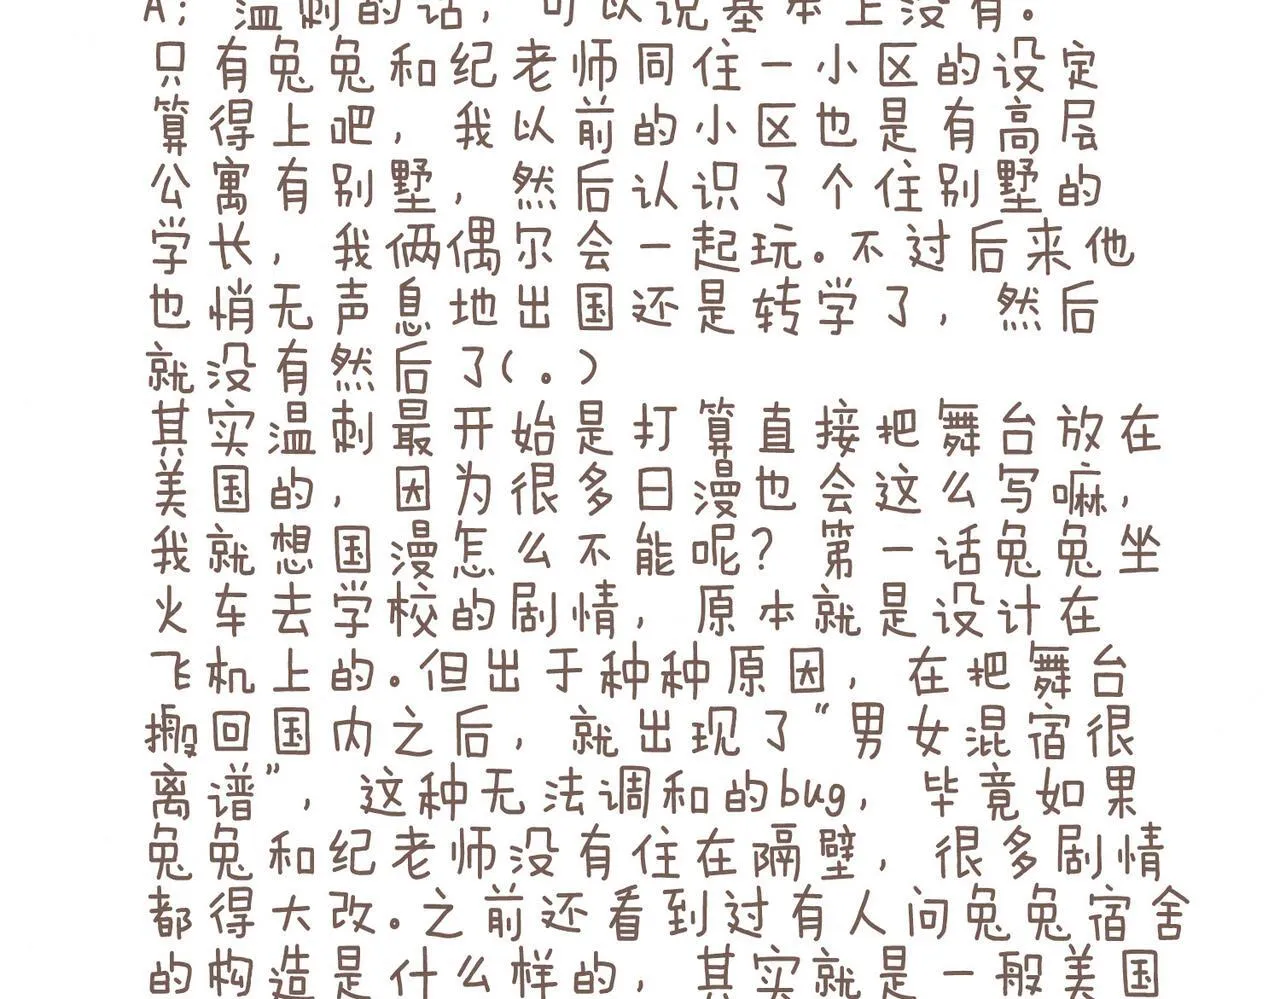 A：温刺的话，可以说基本上没有。
只有兔兔和纪老师同住一小区的设定
算得上吧，我以前的小区也是有高层
公寓有别墅，然后认识了个住别墅的
学长，我俩偶尔会一起玩。不过后来他
也悄无声息地出国还是转学了，然后
就没有然后了(。)
其实温刺最开始是打算直接把舞台放在
美国的，因为很多日漫也会这么写嘛，
我就想国漫怎么不能呢？第一话兔兔坐
火车去学校的剧情，原本就是设计在
飞机上的。但出于种种原因，在把舞台
搬回国内之后，就出现了“男女混宿很
离谱”，这种无法调和的bug，毕竟如果
兔兔和纪老师没有住在隔壁，很多剧情
都得大改。之前还看到过有人问兔兔宿舍
的构造是什么样的，其实就是一般美国